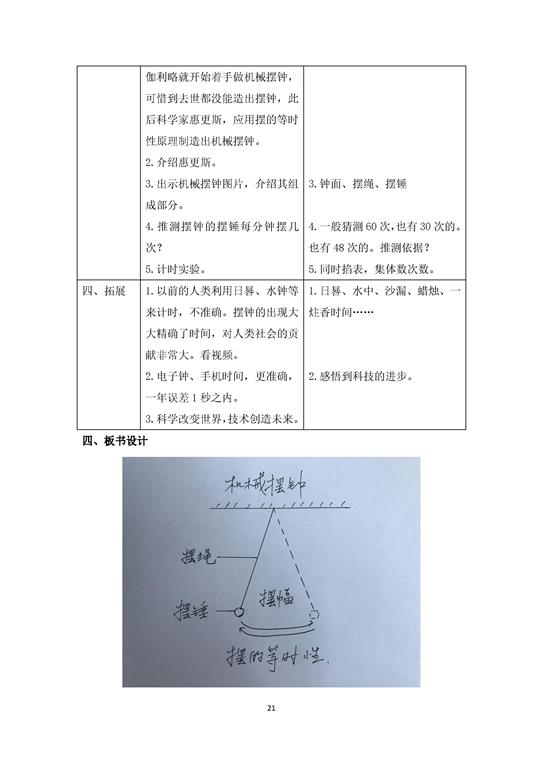 伽利略就开始着手做机械摆钟，
可惜到去世都没能造出摆钟，此
后科学家惠更斯，应用摆的等时
性原理制造出机械摆钟。
2.介绍惠更斯。
3.出示机械摆钟图片，介绍其组
成部分。
3.钟面、摆绳、摆锤
4.推测摆钟的摆锤每分钟摆几
次？
4.一般猜测60次，也有30次的。
也有48次的。推测依据？
5.计时实验。
5.同时掐表，集体数次数。
四、拓展
1.以前的人类利用日晷、水钟等
来计时，不准确。摆钟的出现大
大精确了时间，对人类社会的贡
献非常大。看视频。
1.日晷、水中、沙漏、蜡烛、一
炷香时间……
2.电子钟、手机时间，更准确，
一年误差1秒之内。
2.感悟到科技的进步。
3.科学改变世界，技术创造未来。
四、板书设计
机械摆钟
摆绳
摆锤
摆幅
摆的等时性.
21